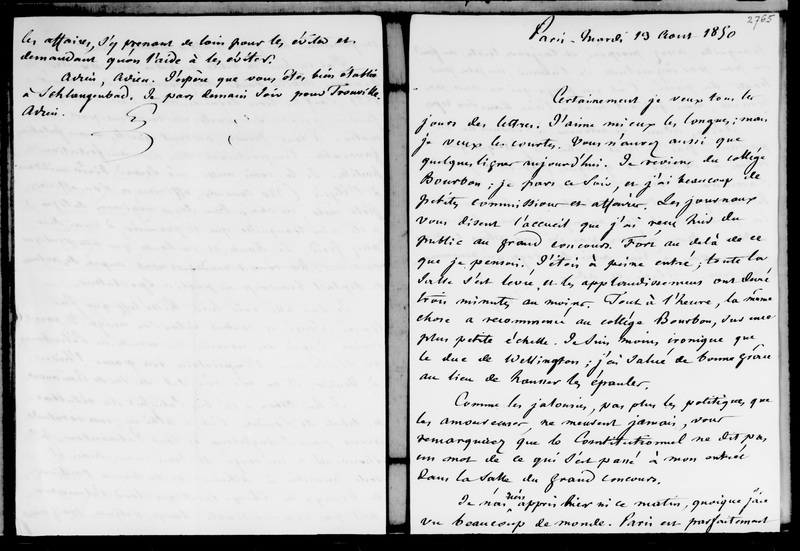 les affaires, s'y prenant de loin pour les éviter et
demandant qu'on l'aide à les éviter.
Adieu, Adieu. J'espère que vous êtes bien établie
à Schlangenbad. Je pars demain soir pour Trouville.
Adieu.
2765
Paris - Mardi 13 Août 1850
Certainement je veux tous les
jours des lettres. J'aime mieux les longues ; mais
je veux les courtes. Vous n'aurez aussi que
quelques lignes aujourd'hui. Je reviens du collège
Bourbon ; je pars ce soir, et j'ai beaucoup de
petites commissions et affaires. Les journaux
vous disent l'accueil que j'ai reçu hier du
public au grand concours. Fort au delà de ce
que je pensois. J'étois à peine entré ; toute la
salle s'est levée et les applaudissements ont duré
trois minutes au moins. Tout à l'heure, la même
chose a recommencé au collège Bourbon, sur une
plus petite échelle. Je suis moins ironique que
le duc de Wellington ; j'ai salué de bonne grâce
au lieu de hausser les épaules.
Comme les jalousies, pas plus les politiques que
les amoureuses, ne meurent jamais, vous
remarquerez que le Constitutionnel ne dit pas
un mot de ce qui s'est passé à mon entrée
dans la salle du grand concours.
Je n'ai rien appris hier ni ce matin, quoique j'aie
vu beaucoup de monde. Paris est parfaitement